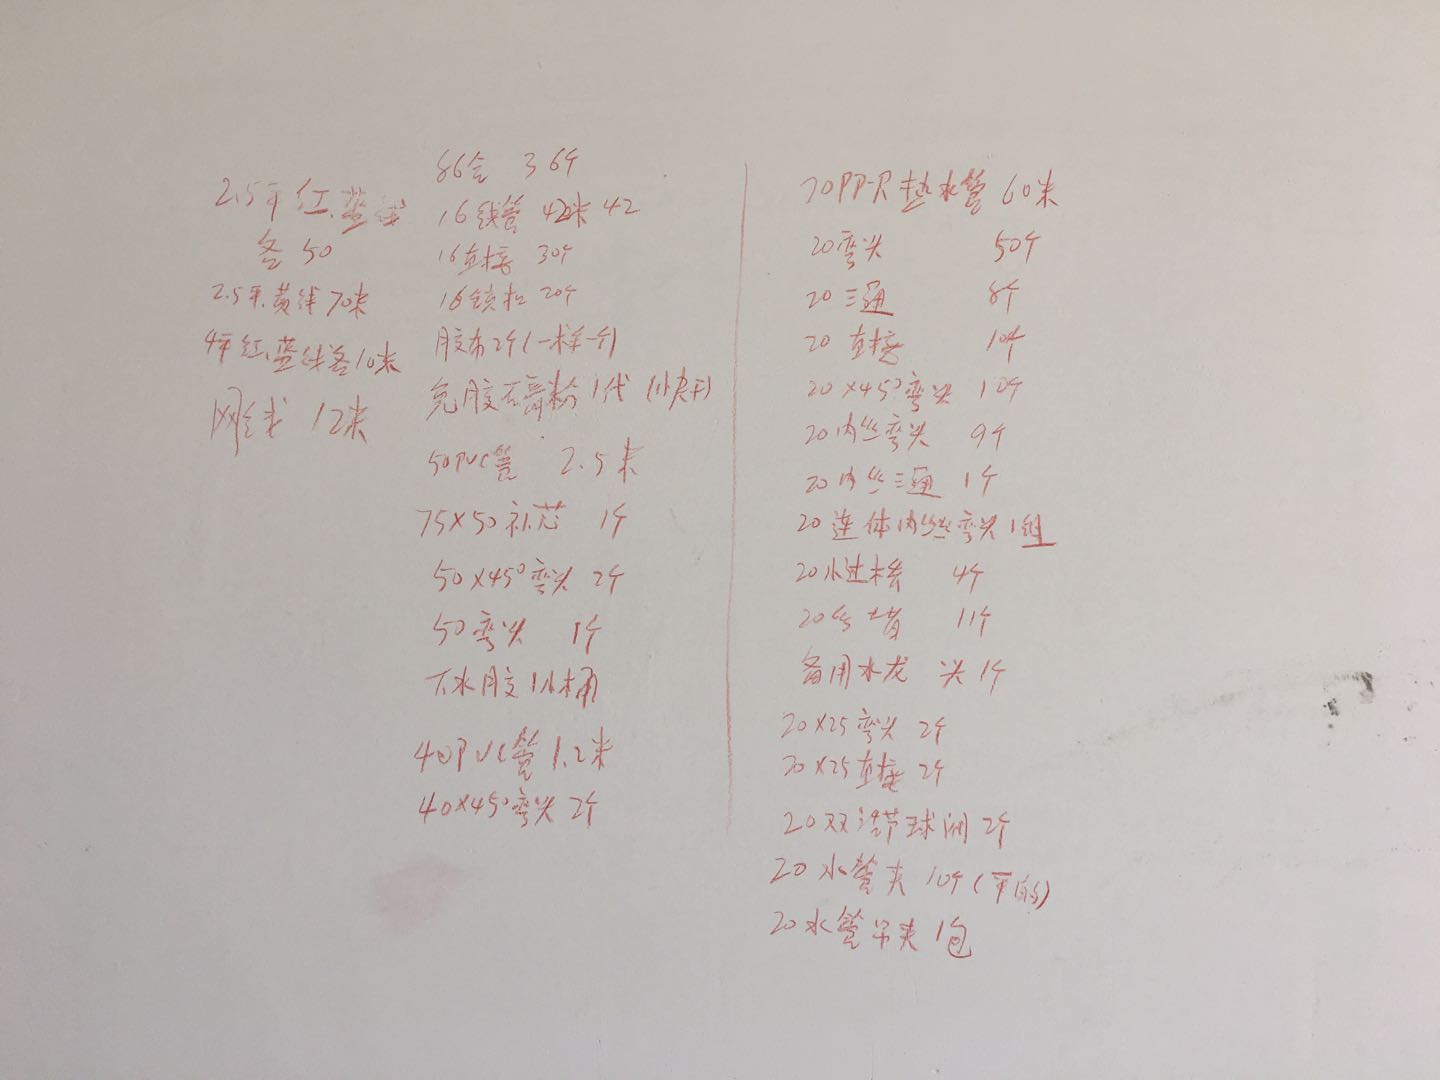 2.5平红.蓝线
各50
2.5平.黄线70米
4平红.蓝线各10米
网线 12米
86合 36个
16线管 42米 42
16直接 30个
16锁扣 20个
胶布2个(一样一个)
免胶石膏粉1代(小快干)
50PVC管 2.5米
75×50补芯 1个
50×45°弯头 2个
50弯头 1个
下水胶1小桶
40PVC管1.2米
40×45°弯头 2个
20PP-R热水管 60米
20弯头 50个
20三通 8个
20直接 10个
20×45°弯头 10个
20内丝弯头 9个
20内丝三通 1个
20连体内丝弯头1组
20小过桥 4个
20丝堵 11个
备用水龙 头1个
20×25弯头 2个
20×25直接 2个
20双活节球阀 2个
20水管夹 10个(平的)
20水管吊夹 1包